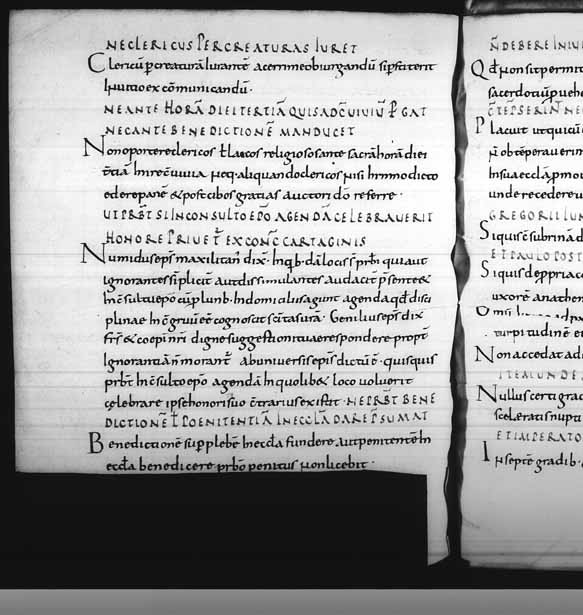 NECLERICUS PERCREATURAS IURET
Clericū p creaturā iurantē acerrime obiurgandū si pstiterit
In uitio excōmunicandū·
NEANTE HORĀ DIEI TERTIĀ QUIS AD CŌUIUIŪ PGAT
NEC ANTE BENEDICTIONĒ MANDUCET
Non oportere clericos ł laicos religiosos ante sacrā horā diei
tertiā Inire cōuiuia neq· aliquando clericos nisi hymno dicto
edere panē & post cibos gratias auctori dō referre·
UT PRBT SI INCONSULTO EPO AGENDĀ CELEBRAUERIT
HONORE PRIUET EX CONC CARTAGINIS
Numidius eps maxilitan dix· In q·b·dā locis s prbi qui aut
Ignorantes simpliciter aut dissimulantes audacit psente &
Inconsulto epo cū plurib· In domiciliis agunt agenda qd disci
plinae Incongruū eē cognoscit scitas ura· Geniliuseps dix·
frs & coepi nri digne suggestioni tuae respondere
Ignorantiā morant ab uniuersis epis dictū ē· quisquis
prbt Inconsulto epo agendā In quolib& loco uoluerit
celebrare ipse honori suo cōtrarius existit· NE PRBT BENE
DICTIONĒ ł POENITENTIĀ IN ECCLA DARE PSUMAT
Benedictionē sup plebē In eccla fundere aut penitentē In
eccla benedicere prbo penitus non licebit·
N̄ DEBERE IN IU
Qđ non sit permit
sacerdotiū p uehe
Placuit ut quicū
n̄ obtēperauerin
In sua eccl apmou
unde recedere
GREGORII IUN
Siquis ē subrinā d
ET PAULO POST
Siquis de ppriā c
uxorē anathem
turpitudinē
Non accedat ad
ITEM UNDE
Nullus certi grad
scelerati nupti
ET IMPERATO
In septē gradib·